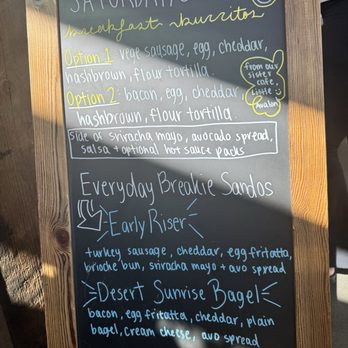 SATURDAYS
breakfast burritos
Option 1: vege sausage, egg, cheddar,
hashbrown, flour tortilla.
Option 2: bacon, egg, cheddar,
hashbrown, flour tortilla.
from our
sister
cafe,
Little
Avalon!
side of sriracha mayo, avocado spread,
salsa + optional hot sauce packs
Everyday Breakie Sandos
Early Riser
turkey sausage, cheddar, egg fritatta,
brioche bun, sriracha mayo + avo spread
Desert Sunrise Bagel
bacon, egg fritatta, cheddar, plain
bagel, cream cheese, avo spread